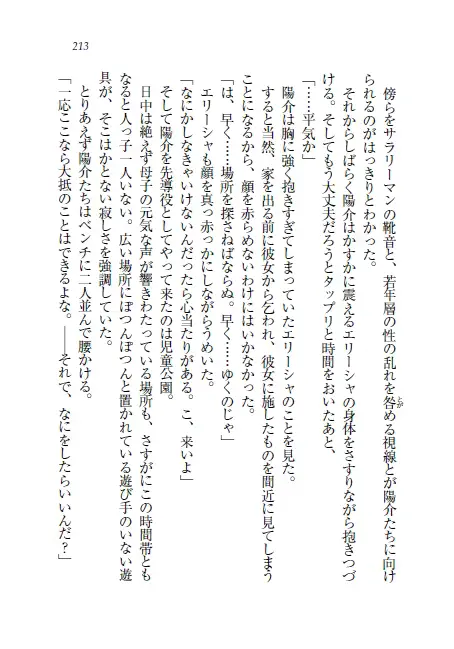 213
傍らをサラリーマンの靴音と、若年層の性の乱れを咎める視線とが陽介たちに向け
られるのがはっきりとわかった。
それからしばらく陽介はかすかに震えるエリーシャの身体をさすりながら抱きつづ
ける。そしてもう大丈夫だろうとタップリと時間をおいたあと、
「……平気か」
陽介は胸に強く抱きすぎてしまっていたエリーシャのことを見た。
すると当然、家を出る前に彼女から乞われ、彼女に施したものを間近に見てしまう
ことになるから、顔を赤らめないわけにはいかなかった。
「は、早く……場所を探さねばならぬ。早く……ゆくのじゃ」
エリーシャも顔を真っ赤っかにしながらうめいた。
「なにかしなきゃいけないんだったら心当たりがある。こ、来いよ」
そして陽介を先導役としてやって来たのは児童公園。
日中は絶えず母子の元気な声が響きわたっている場所も、さすがにこの時間帯とも
なると人っ子一人いない。広い場所にぽつんぽつんと置かれている遊び手のいない遊
具が、そこはかとない寂しさを強調していた。
とりあえず陽介たちはベンチに二人並んで腰かける。
「一応ここなら大抵のことはできるよな。――それで、なにをしたらいいんだ？」